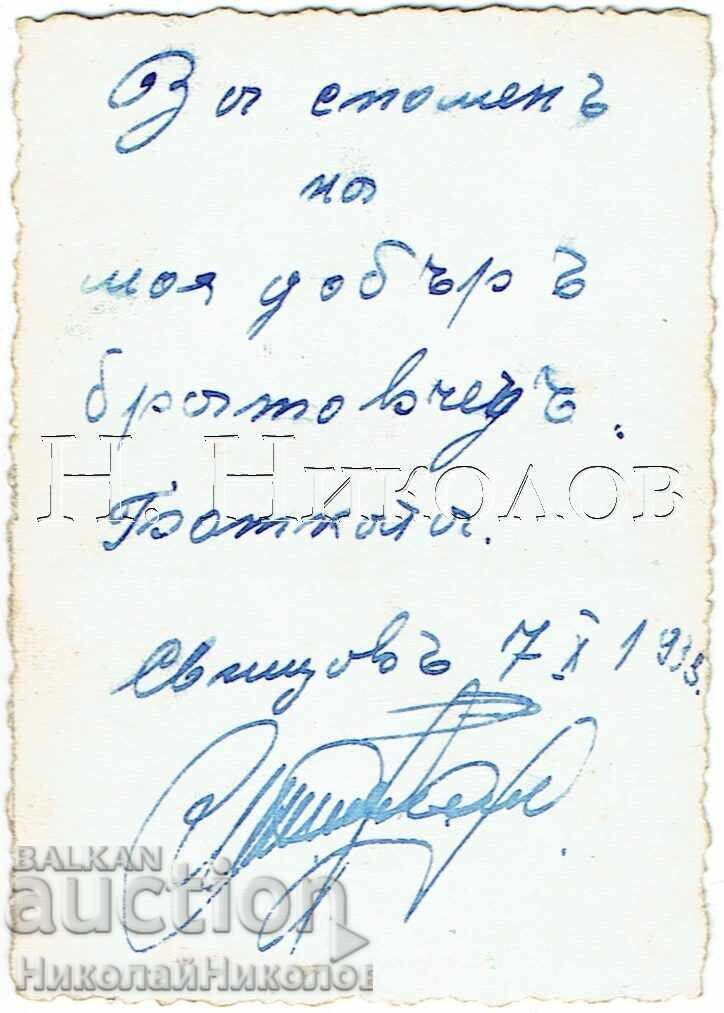 За споменъ
на
моя добъръ
братовчедъ.
Н. Николов
Батката.
Свищовъ 7 X 1935.
BALKAN
auction
НиколайНиколов